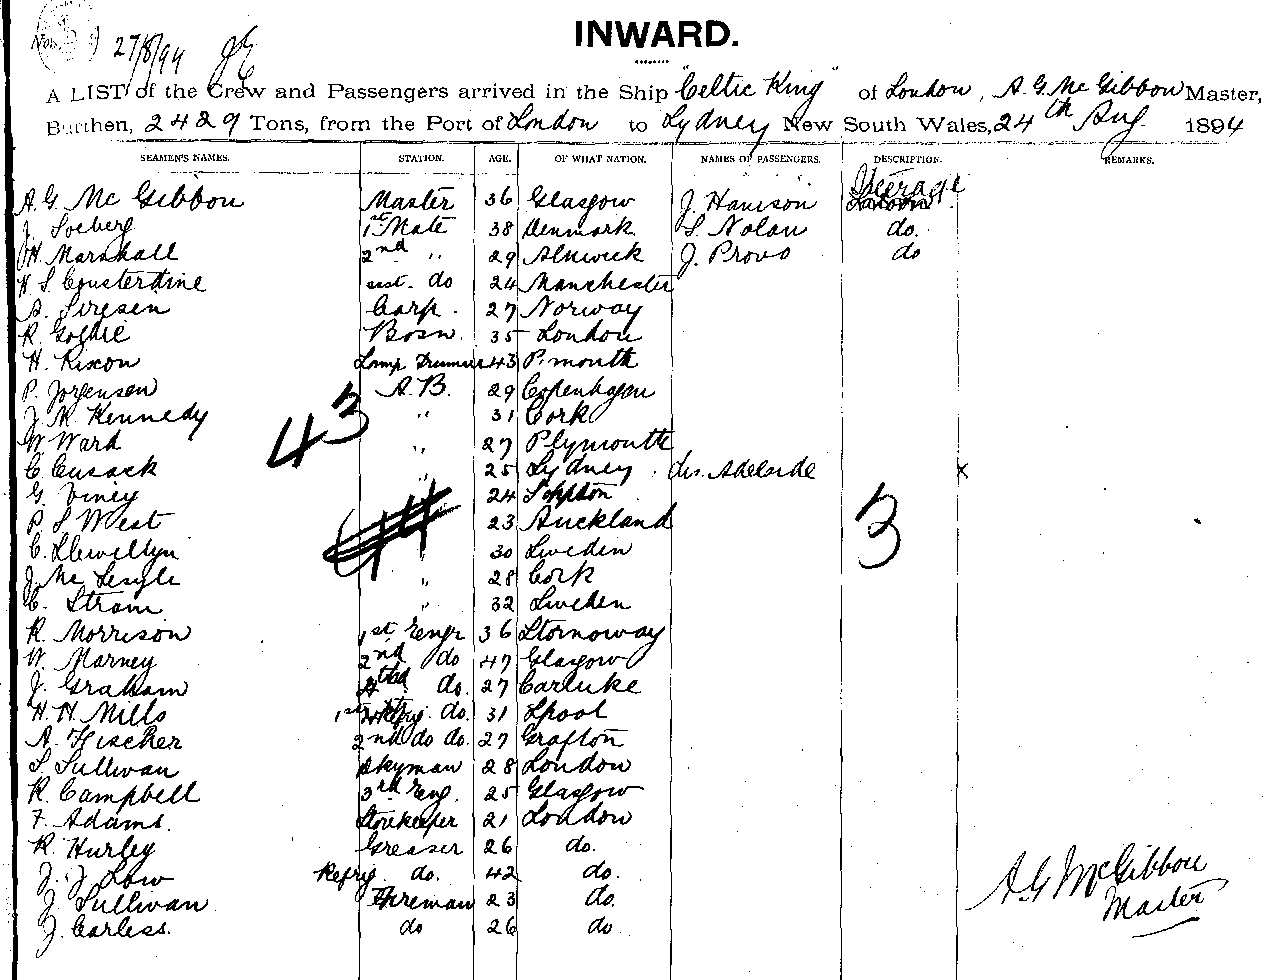 INWARD.
27/8/94
A LIST of the Crew and Passengers arrived in the Ship "Celtic King" of London, A.G. Mc Gibbon Master,
Burthen, 2429 Tons, from the Port of London to Sydney New South Wales, 24th Aug 1894
SEAMEN'S NAMES. STATION. AGE. OF WHAT NATION. NAMES OF PASSENGERS. DESCRIPTION. REMARKS.
A.G. Mc Gibbon Master 36 Glasgow J. Hanison Steerage
J. Soeberg 1st Mate 38 Denmark S. Nolan do.
W. Marshall 2nd " 29 Alnwick J. Provo do
H. S. Cousterdine asst. do 24 Manchester
A. Siresen Carp. 27 Norway
R. Goldie Bosn. 35 London
H. Rixon Lamp Trimmer 43 P.mouth
P. Jorgensen A.B. 29 Copenhagen
J. M. Kennedy " 31 Cork
43
W. Ward " 27 Plymouth
C. Cusack " 25 Sydney dis. Adelaide x
G. Viney 24
P. S. West 23 Auckland
3
C. Llewellyn " 30 Sweden
J. Mc " 28 Cork
C. Strom " 32 Sweden
R. Morrison 1st Engr 36 Stornoway
W. Marney 2nd do 47 Glasgow
J. Graham do. 27 Carluke
H. H. Mills 1st Refrig. do. 31 Lpool
A. Fischer 2nd do do. 27 Grafton
S. Sullivan Dkyman 28 London
R. Campbell 3rd Eng. 25 Glasgow
F. Adams. Storekeeper 21 London
R. Hurley Greaser 26 do.
J. J. Low Refrig. do. 42 do.
J. Sullivan Fireman 23 do.
J. Carless. do 26 do
A.G. McGibbon
Master